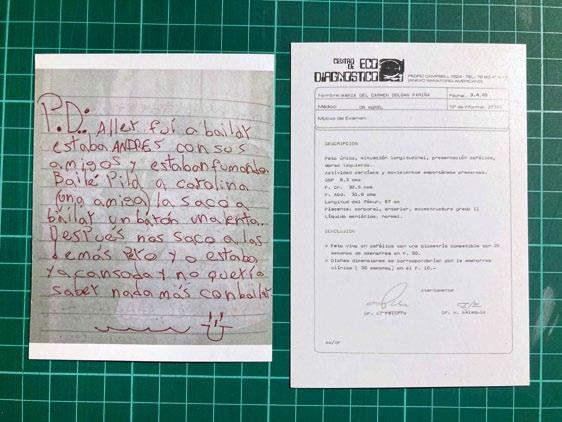 P.D: Aller fuí a bailar
estaba ANDRES con sus
amigos y estaban fumando.
Bailé Pila, a carolina
(una amiga) la saco a
bailar un barón una lenta...
Después nos saco a las
demás pero yo estaba
ya cansada y no quería
saber nada más con bailar
CENTRO DE ECO
DIAGNOSTICO
PEDRO CAMPBELL
(ANEXO SANATORIO AMERICANO)
Nombre: MARIA DEL CARMEN
Fecha: 3.4.
Médico: DR
Nº de Informe:
Motivo de Examen:
DESCRIPCION
Feto único, situación longitudinal, presentación cefálica,
dorso izquierdo.
Actividad cardíaca y movimientos espontáneos presentes.
DBP 9.3 cms
P. Cr. 32.5 cms
P. Abd. 31.6 cms
Longitud del fémur: 67 mm
Placenta: corporal, anterior, ecoestructura grado II
Líquido amniótico: normal.
CONCLUSION
- Feto vivo en cefálica con una biometría compatible con 36
semanas de amenorrea en P. 50.
- Dichas dimensiones se corresponderían con la amenorrea
clínica ( 38 semanas) en el P. 10.-
Atentamente